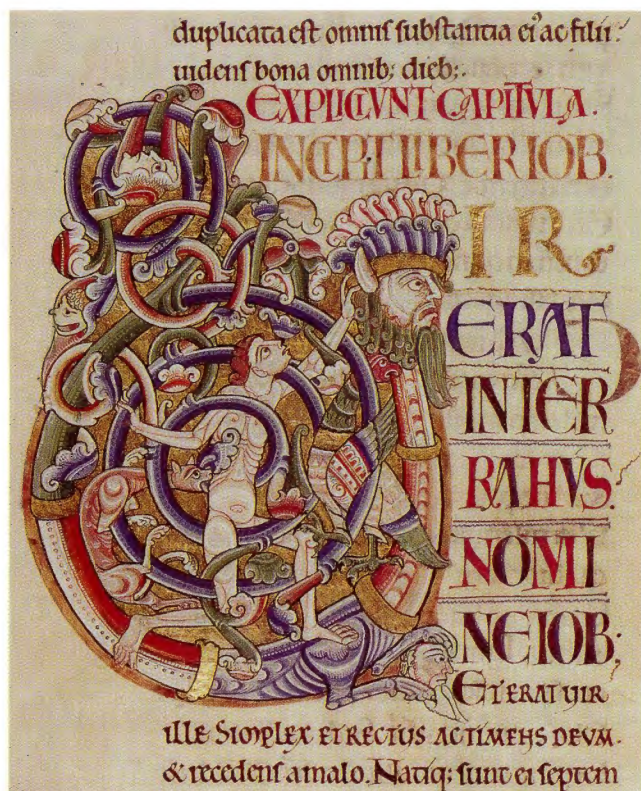 duplicata est omnis substantia ei⁹ ac filii
uidens bona omnib; dieb;
EXPLICIUNT CAPITVLA.
INCIPIT LIBER IOB.
IR
ERAT
IN TER
RA HVS.
NOMI
NE IOB;
ET ERAT VIR
ille SIMPLEX ET RECTUS AC TIMENS DEVM.
& recedens a malo. Natiq; sunt ei septem